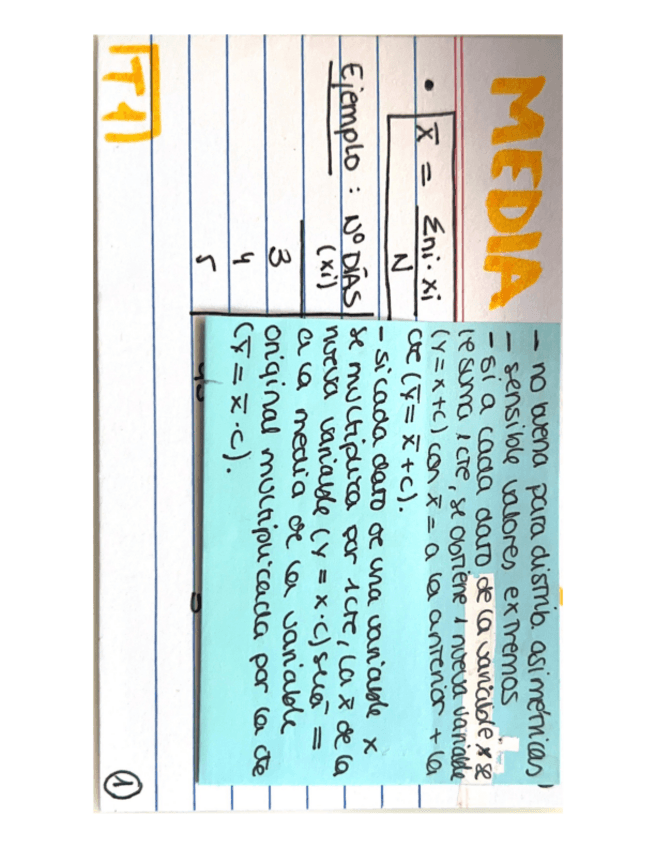 MEDIA
• x̄ = Σni·xi
N
Ejemplo: Nº DÍAS
(xi)
3
4
5
T1
- no buena para distrib. asimétricas
- sensible valores extremos
- si a cada dato de la variable x se
le suma 1 cte, se obtiene 1 nueva variable
(y=x+c) con x̄ = a la anterior + la
cte (ȳ = x̄ + c).
- si cada dato de una variable x
se multiplica por 1 cte, la x̄ de la
nueva variable (y = x·c) será =
a la media de la variable
original multiplicada por la cte
(ȳ = x̄·c).
1